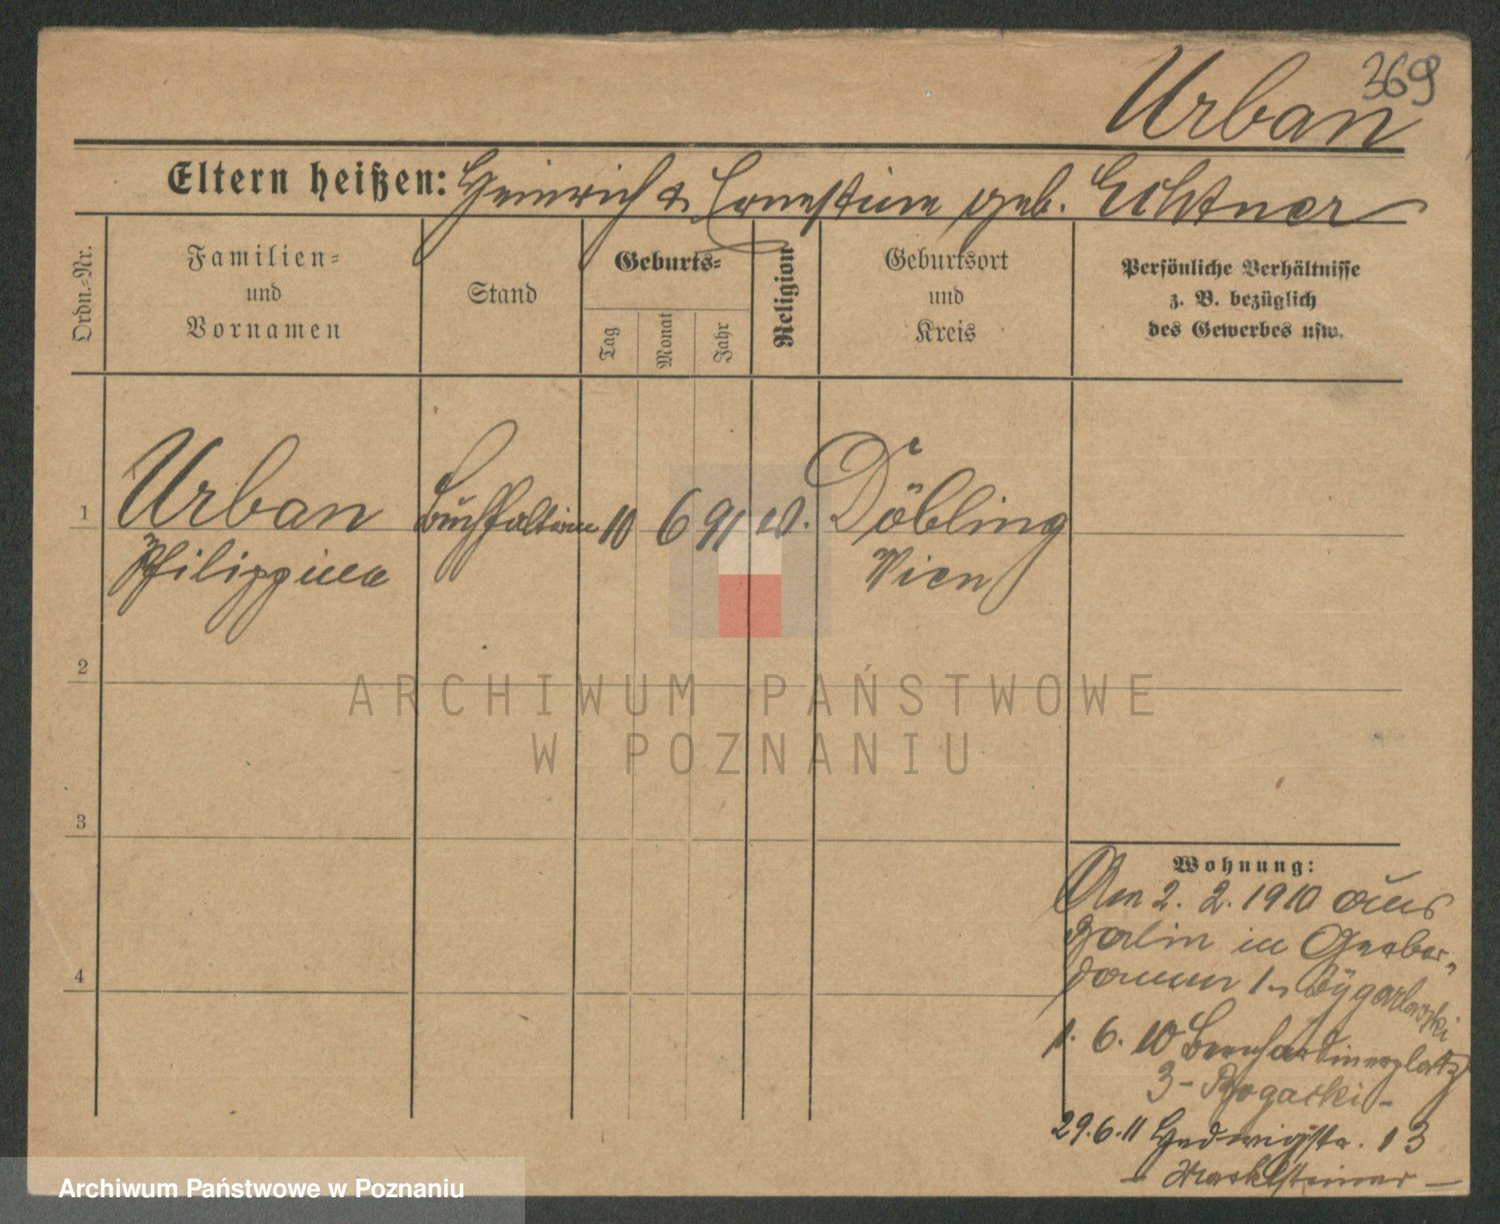 369
Urban
Eltern heißen: Heinrich & Ernestine geb. Echtner
Ordn.-Nr.
Familien-
und
Vornamen
Stand
Geburts-
Tag
Monat
Jahr
Religion
Geburtsort
und
Kreis
Persönliche Verhältnisse
z. B. bezüglich
des Gewerbes usw.
1
Urban Buchhalterin 10 6 91 Döbling
Philippina Wien
2
ARCHIWUM PAŃSTWOWE
W POZNANIU
3
Wohnung:
Am 2. 2. 1910 aus
Berlin in Gerber-
damm 1
4
1. 6. 10 Bernhardinerplatz
3 - Rogaski -
29.6.11 Hedwigstr. 13
Archiwum Państwowe w Poznaniu